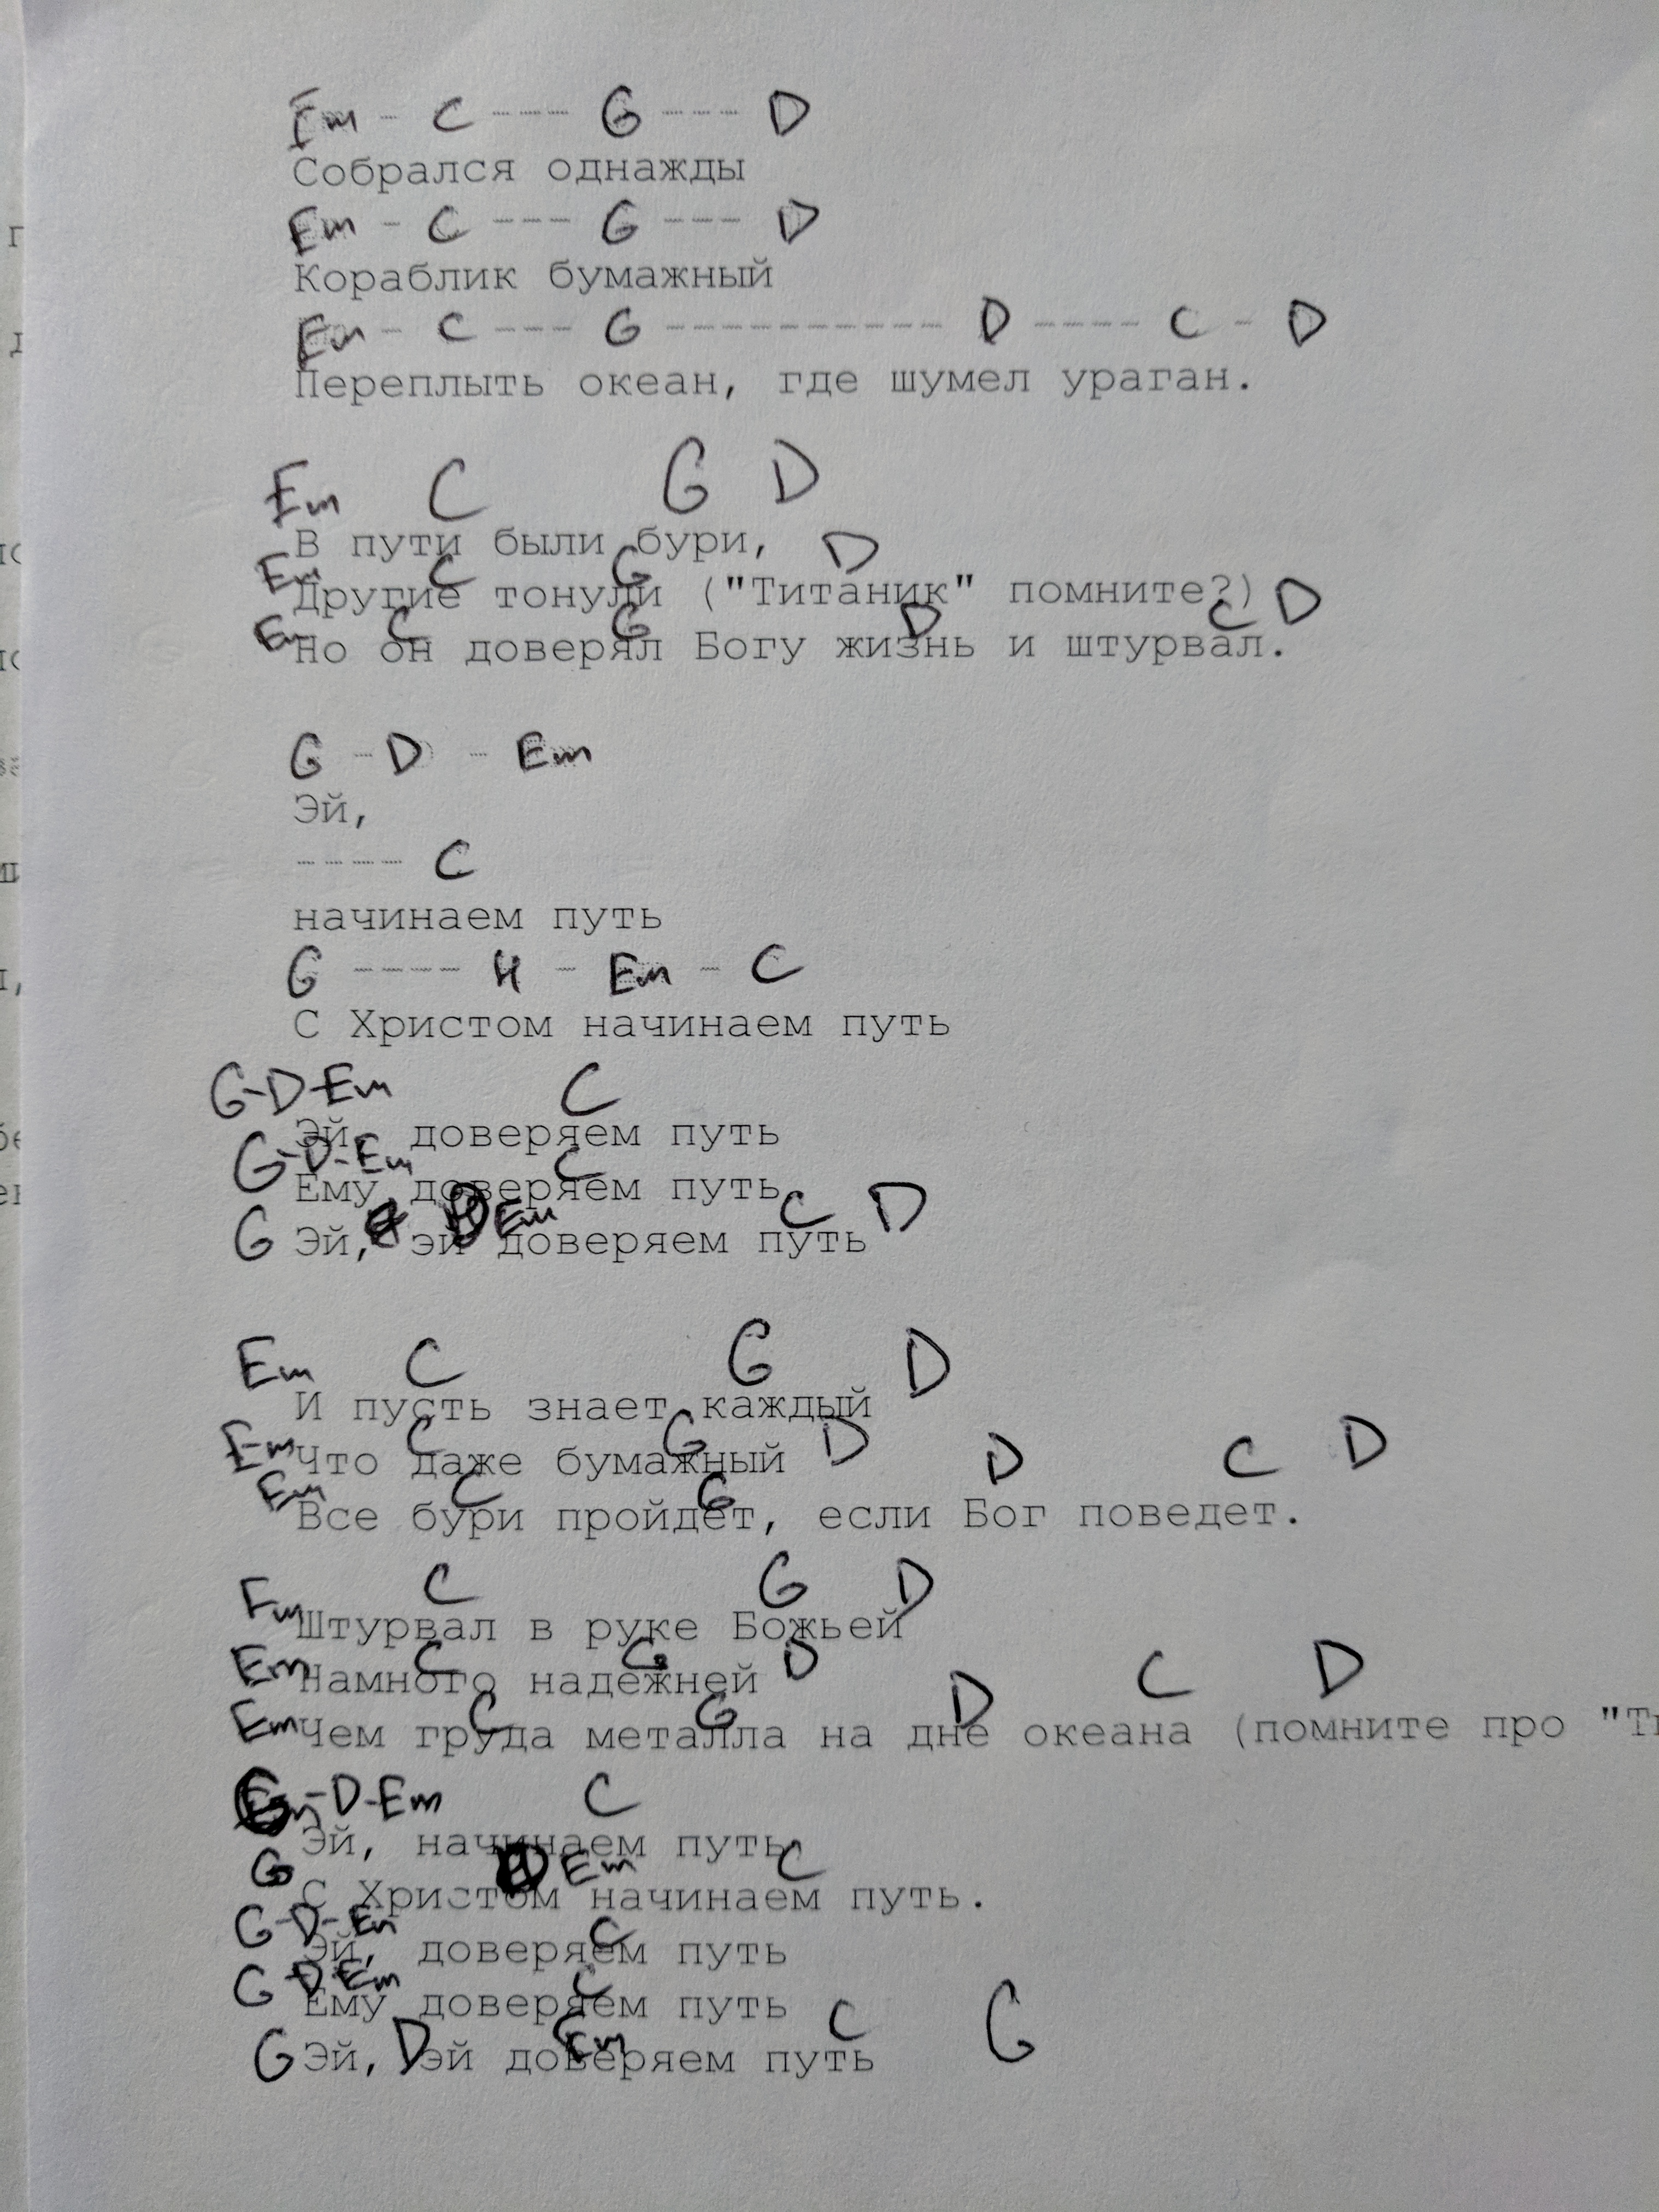 Em - C --- G --- D
Собрался однажды
Em - C --- G --- D
Кораблик бумажный
Em - C --- G ----------- D ---- C - D
Переплыть океан, где шумел ураган.
Em C G D
В пути были бури,
Em C G D
Другие тонули ("Титаник" помните?)
Em C G D C D
Но он доверял Богу жизнь и штурвал.
G - D - Em
Эй,
---- C
начинаем путь
G ---- H - Em - C
С Христом начинаем путь
G-D-Em C
Эй, доверяем путь
G-D-Em C
Ему доверяем путь
G D Em C D
Эй, эй доверяем путь
Em C G D
И пусть знает каждый
Em C G D
Что даже бумажный
Em C G D C D
Все бури пройдет, если Бог поведет.
Em C G D
Штурвал в руке Божьей
Em C G D
Намного надежней
Em C G D C D
Чем груда металла на дне океана (помните про "Ти
G-D-Em C
Эй, начинаем путь
G D Em C
С Христом начинаем путь.
G-D-Em C
Эй, доверяем путь
G D Em C
Ему доверяем путь
G D Em C G
Эй, эй доверяем путь